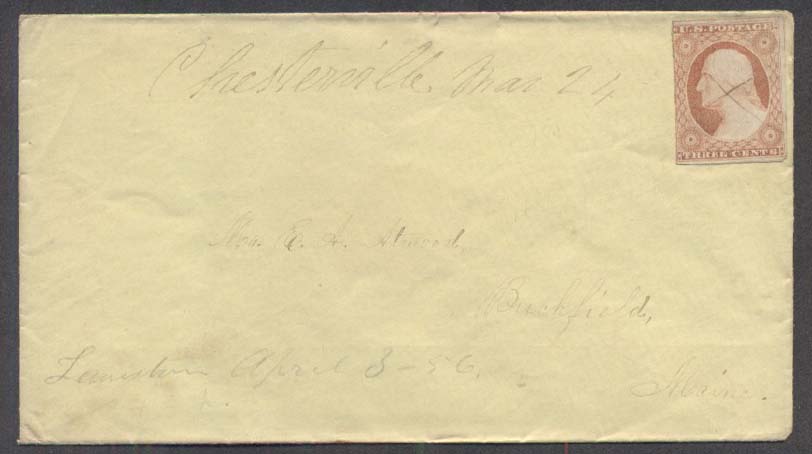 Chesterville Mar 24
U.S. POSTAGE
THREE CENTS
Mrs. E. A. Atwood,
Buckfield,
Lewiston April 3-56.
Maine.